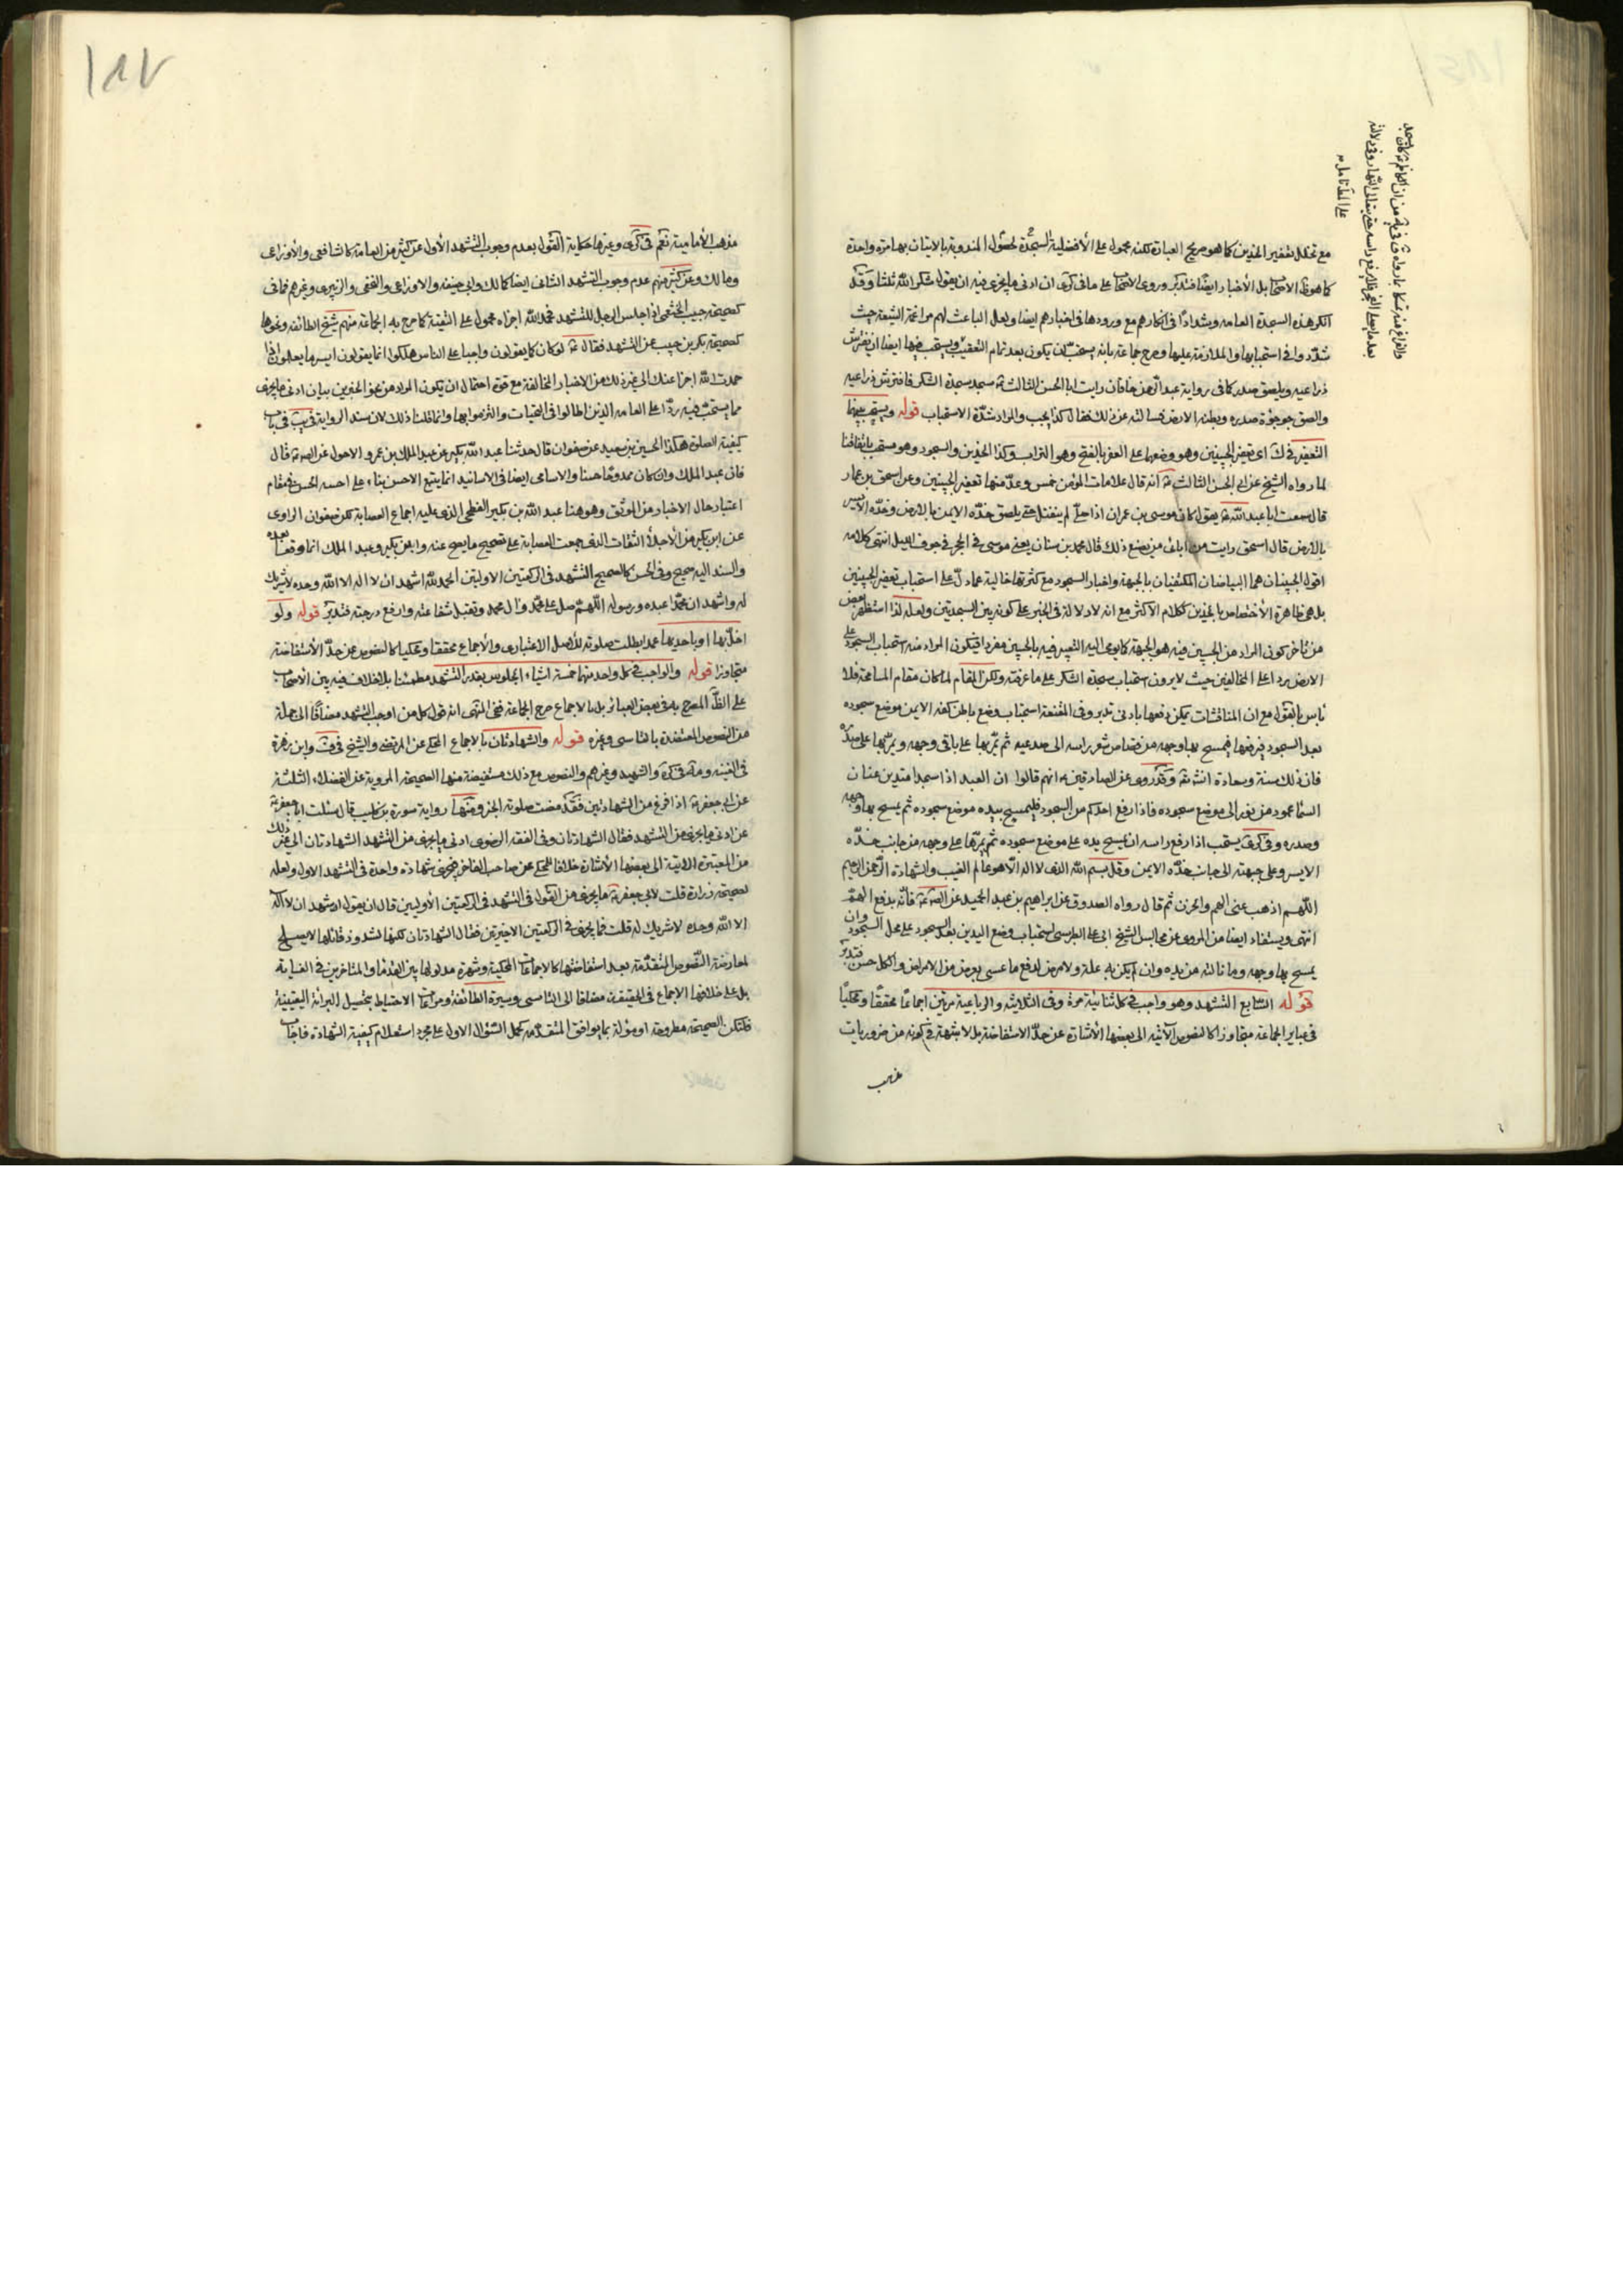 مع تخلل تعفير الخدين كما هو صريح العبارة لكنه محمول على الأفضلية لحصول المندوبة بالاتيان بها مرة واحدة
كما هو ظ الاصحاب بل الأخبار ايضا فتدبر وروى الاصحاب على ما فى كرى ان ادنى ما يجزى فيه ان يقول شكرا لله ثلثا وقد
انكر هذه السجدة العامه وشدادا فى انكارهم مع ورودها فى اخبارهم ايضا ولعل الباعث لهم مراغمة الشيعة حيث
شددوا فى استحبابها والملازمة عليها وصرح جماعة بانه يستحب ان يكون بعد تمام التعقيب ويستحب فيها ايضا ان يفترش
ذراعيه ويلصق صدره كما فى رواية عبد الرحمن خاقان رايت ابا الحسن الثالث ع سجد سجدة الشكر فافترش ذراعيه
والصق جوجؤه صدره وبطنه الارض فسالته عن ذلك فقال كذا يجب والمراد شدة الاستحباب قوله ويستحب بينهما
التعفير فى ك اى تعفير الجبينين وهو وضعهما على العفر بالفتح وهو التراب وكذا الخدين والسجود وهو مستحب باتفاقنا
لما رواه الشيخ عن ابى الحسن الثالث ع انه قال علامات المؤمن خمس وعد منها تعفير الجبينين وعن اسحق بن عمار
قال سمعت ابا عبد الله ع يقول كان موسى بن عمران اذا صلى لم ينفتل حتى يلصق خده الايمن بالارض وخده الايسر
بالارض قال اسحق رايت من اباى من يصنع ذلك قال محمد بن سنان يعنى موسى فى الحجر فى جوف الليل انتهى كلامه
اقول الجبينان هما البياضان المكتنفان بالجبهة واخبار السجود مع كثرتها خالية عما دل على استحباب تعفير الجبينين
بل هى ظاهرة الاختصاص بالخدين ككلام الاكثر مع انه لا دلالة فى الخبر على كونه بين السجدتين ولعله لذا استظهر بعض
من تأخر كون المراد من الجبين فيه هو الجبهة كما يومى اليه التعبير فيه بالجبين مفردا فيكون المراد منه استحباب السجود على
الارض ردا على المخالفين حيث لا يرون استحباب سجدة الشكر على ما عرفته ولكن المقام لما كان مقام المسامحة فلا
بأس بالقول مع ان المناقشات يمكن دفعها بادنى تدبر وفى المقنعة استحباب وضع باطن كفه الايمن موضع سجوده
بعد السجود فيرفعها فيمسح بها وجهه من قصاص شعر راسه الى صدغيه ثم يمر بها على باقى وجهه ويمر بها على صدره
فان ذلك سنة وسعادة انشاء الله وقد روى عن الصادقين ع انهم قالوا ان العبد اذا سجد امتد من عنان
السماء عمود من نور الى موضع سجوده فاذا رفع احدكم من السجود فليمسح بيده موضع سجوده ثم يمسح بها وجهه
وصدره وفى كرى يستحب اذا رفع راسه ان يمسح يده على موضع سجوده ثم يمرها على وجهه من جانب خده
الايسر وعلى جبهته الى جانب خده الايمن وقل بسم الله الذى لا اله الا هو عالم الغيب والشهادة الرحمن الرحيم
اللهم اذهب عنى الهم والحزن ثم قال رواه الصدوق عن ابراهيم بن عبد الحميد عن الصادق ع فأنه يدفع الهم
انتهى ويستفاد ايضا من المروى عن مجالس الشيخ ابى على الطبرسى استحباب وضع اليدين بعد السجود على محل السجود وان
يمسح بها وجهه وما نالته من بدنه وان لم يكن به علة ولا مرض لدفع ما عسى يعرض من الامراض والكل حسن فتدبر
قوله السابع التشهد وهو واجب فى كل ثنائية مرة وفى الثلاثية والرباعية مرتين اجماعا محققا ومحكيا
فى عباير الجماعة متجاوزا كالنصوص الآتيه الى بعضها الأشارة عن حد الاستفاضة بل لا شبهة فى كونه من ضروريات
مذهب
١٨٧
مذهب الأمامية نعم فى كرى وغيرها حكاية القول بعدم وجوب التشهد الأول عن كثير من العامة كالشافعى والأوزاعى
ومالك وعن كثير منهم عدم وجوب التشهد الثانى ايضا كمالك وابى حنيفه والاوزاعى والنخعى والزهرى وغيرهم فما فى
كصحيحة حبيب الخثعمى اذا جلس الرجل للتشهد فحمد الله اجزاه محمول على التقية كما صرح به الجماعة منهم شيخ الطائفه ونحوها
كصحيحة بكر بن حبيب عن التشهد فقال ع لو كان كما يقولون واجبا على الناس هلكوا انما يقولون ايسر ما يعلمون اذا
حمدت الله اجزا عنك الى غير ذلك من الاخبار المخالفة مع قوة احتمال ان يكون المراد من نحو الخبرين بيان ادنى ما يجزى
مما يستحب فيه ردا على العامه الذين اطالوا فى التحيات والتزموا بها وانما قلنا ذلك لان سند الرواية فى يب فى باب
كيفية الصلوة هكذا الحسين بن سعيد عن صفوان قال حدثنا عبد الله بكير عن عبد الملك بن عمرو الاحول عن الصادق ع قال
فان عبد الملك وان كان ممدوحا حسنا والاسامى ايضا فى الاسانيد انما يتبع الاحسن بناء على احسنه الحسن فى مقام
اعتبار حال الاخبار من الموثق وهو هنا عبد الله بن بكير الفطحى الذى عليه اجماع العصابة لكن صفوان الراوى
عن ابن بكير من الأجلة الثقات الذى اجمعت العصابة على تصحيح ما يصح عنه وابن بكير وعبد الملك انما وقعا بعده
والسند اليه صحيح وفى الحسن كالصحيح التشهد فى الركعتين الاوليتين الحمد لله اشهد ان لا اله الا الله وحده لا شريك
له واشهد ان محمدا عبده ورسوله اللهم صل على محمد وال محمد وتقبل شفاعته وارفع درجته فتدبر قوله ولو
اخل بها او باحديهما عمدا بطلت صلوته للاصل الاعتبارى والأجماع محققا ومحكيا كالنصوص عن حد الأستفاضة
متجاوزا قوله والواجب فى كل واحد منهما خمسة اشياء الجلوس بقدر التشهد مطمئنا بلا خلاف فيه بين الأصحاب
على الظاهر المصرح به فى بعض العبائر بل بالاجماع صرح الجماعة ففى المنتهى انه قول كل من اوجب التشهد مضافا الى جملة
من النصوص المعتضدة بالتاسى وغيره قوله والشهادتان بالاجماع المحكى عن المرتضى والشيخ فى ف وابن زهرة
فى الغنية و مة فى كرة والشهيد وغيرهم والنصوص مع ذلك مستفيضة منها الصحيحة المروية عن الفضلاء الثلثة
عن ابى جعفر ع اذا فرغ من الشهادتين فقد مضت صلوته الخبر ومنها رواية سورة بن كليب قال سئلت ابا جعفر ع
عن ادنى ما يجزى من التشهد فقال الشهادتان وفى الفقه الرضوى ادنى ما يجزى من التشهد الشهادتان الى غير ذلك
من المعتبرة الاتية الى بعضها الأشارة خلافا للمحكى عن صاحب الفاخر فيجزى شهادة واحدة فى التشهد الاول ولعله
لصحيحة زرارة قلت لابى جعفر ع ما يجزى من القول فى التشهد فى الركعتين الأوليين قال ان يقول اشهد ان لا اله
الا الله وحده لا شريك له قلت فما يجزى فى الركعتين الاخيرتين فقال الشهادتان لكنها لشذوذ قائلها لا يصلح
لمعارضة النصوص المتقدمة بعد استفاضتها كالاجماعات المحكية وشهرة مدلولها بين القدماء والمتاخرين فى الغاية
بل على خلافها الاجماع فى الحقيقة مضافا الى التاسى وسيرة الطائفة ومراعات الاحتياط بتحصيل البرائة اليقينية
فلتكن الصحيحة مطروحة او مؤلة بما يوافق المتقدمة كحمل السؤال الاول على مجرد استعلام كيفية الشهادة فاجاب